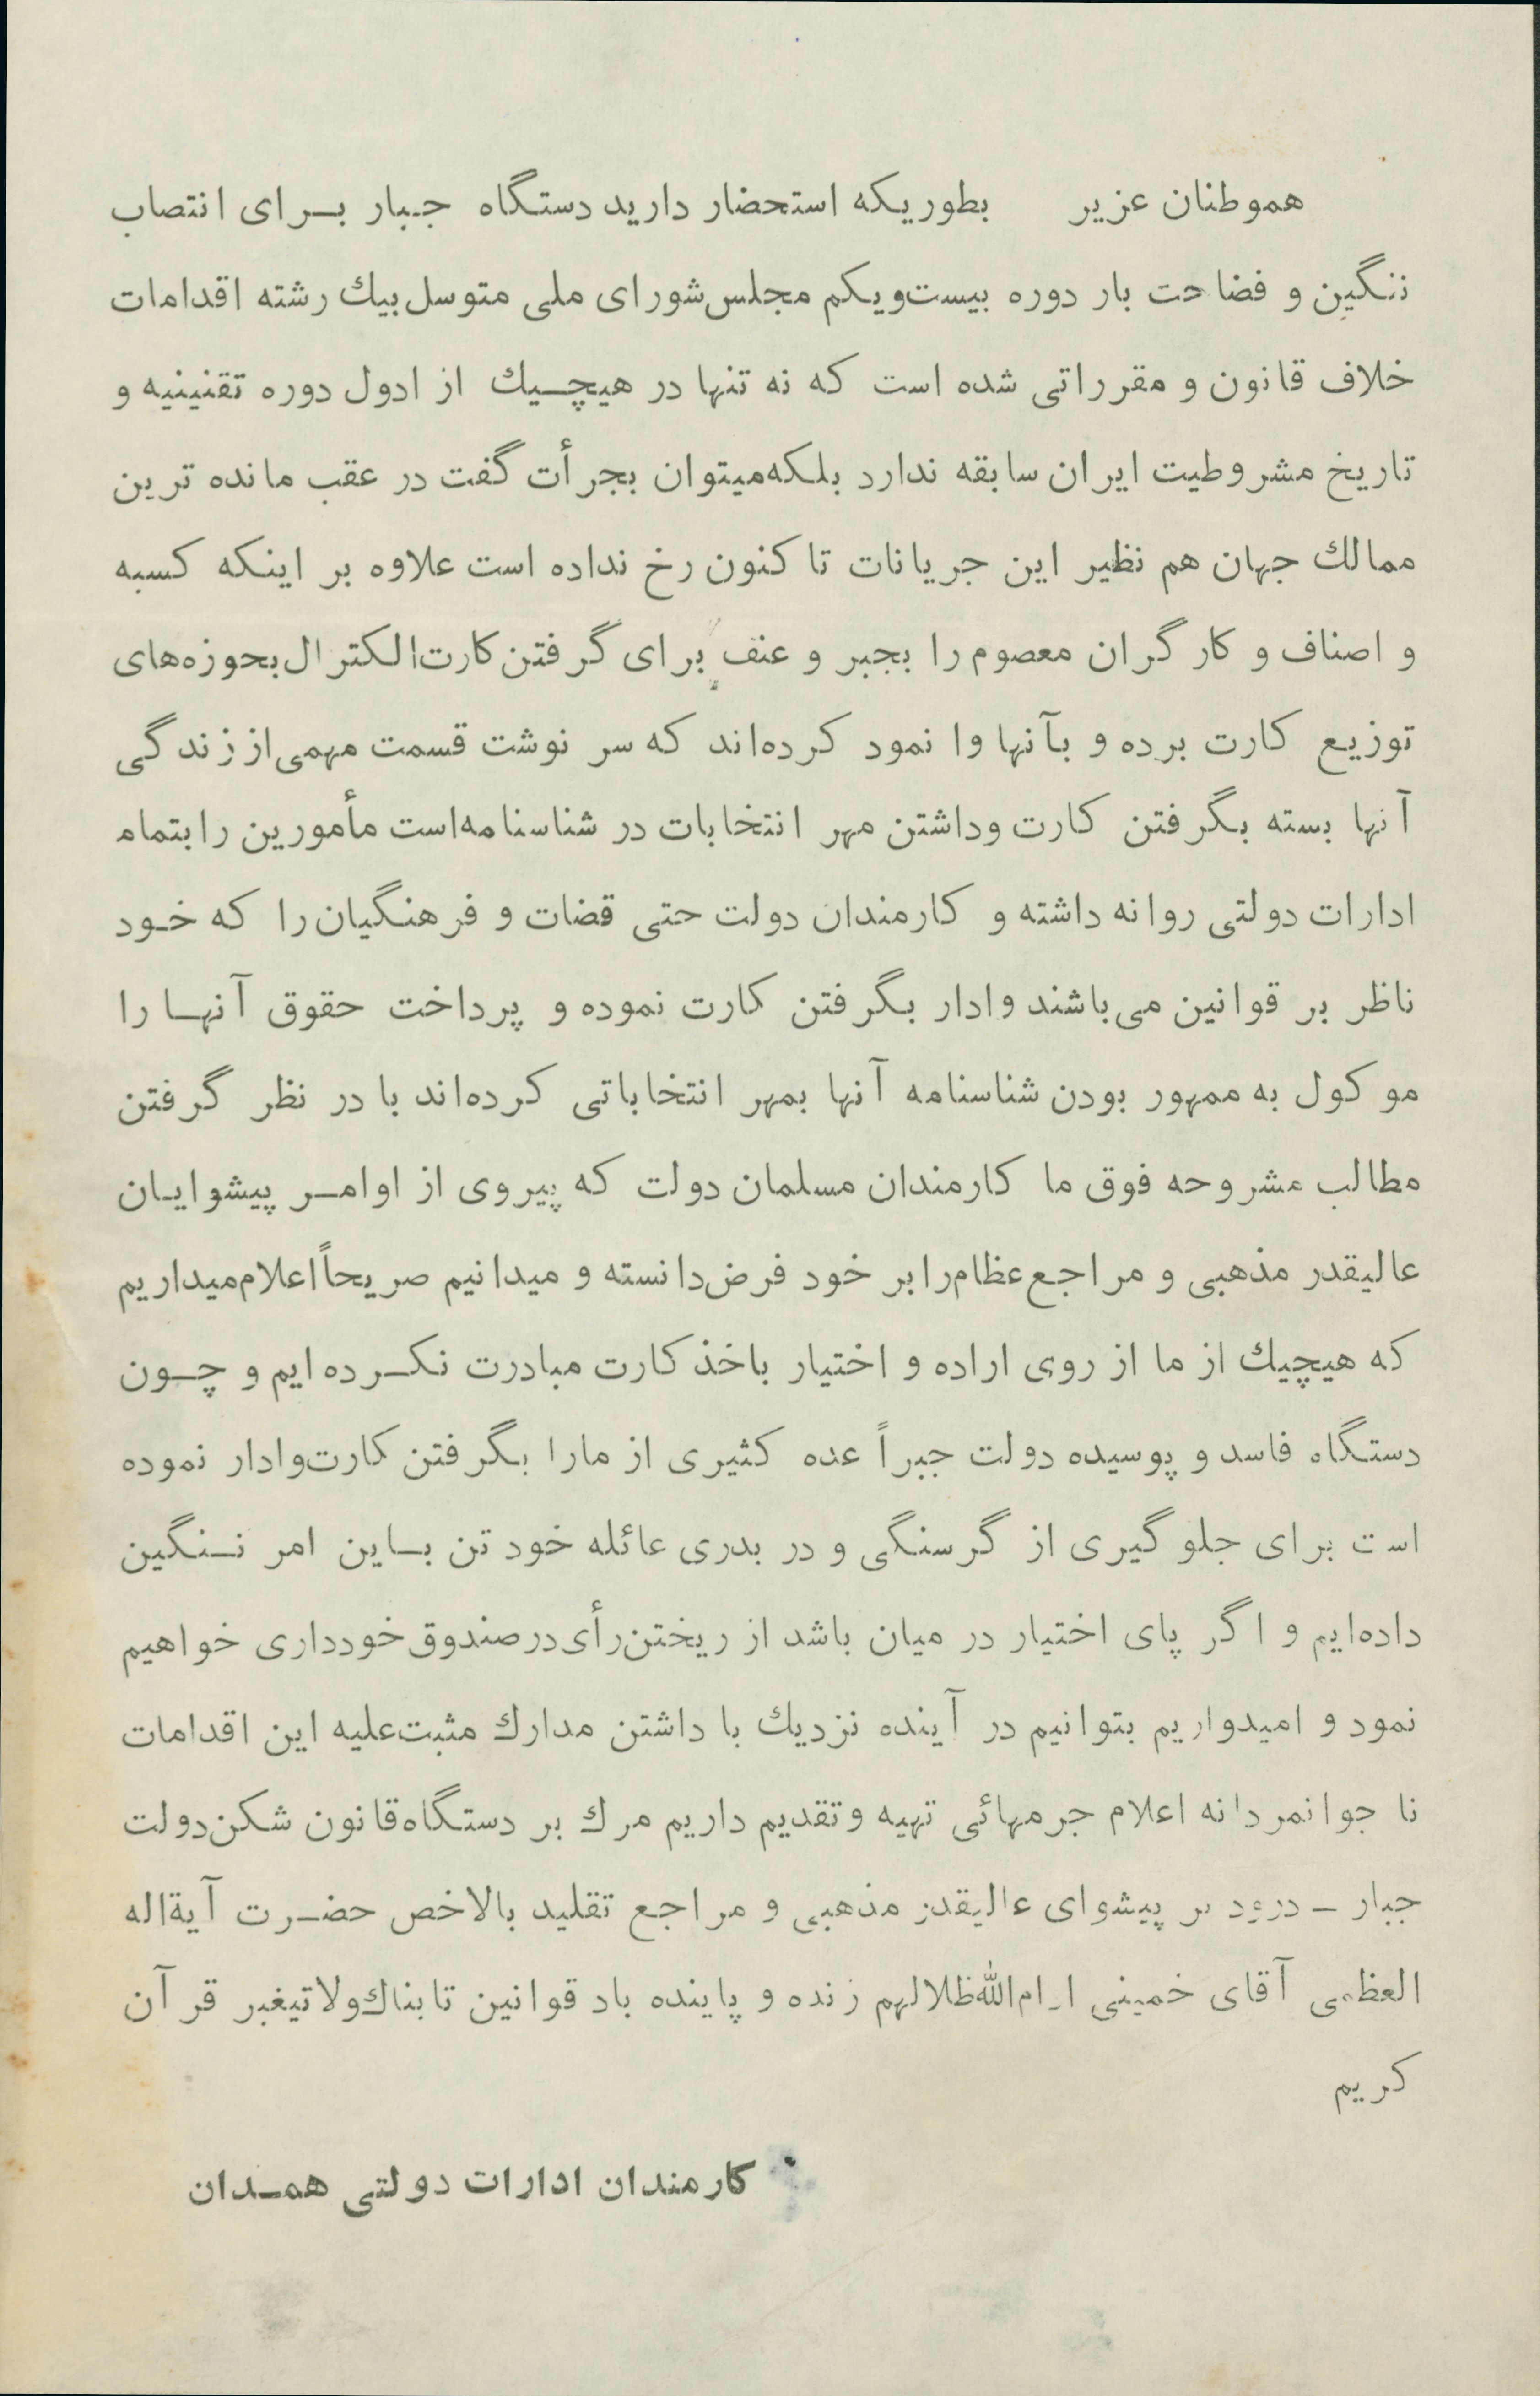 هموطنان عزیر بطوریکه استحضار دارید دستگاه جبار برای انتصاب
ننگین و فضاحت بار دوره بیست‌ویکم مجلس‌شورای ملی متوسل بیك رشته اقدامات
خلاف قانون و مقرراتی شده است که نه تنها در هیچیك از ادول دوره تقنینیه و
تاریخ مشروطیت ایران سابقه ندارد بلکه‌میتوان بجرأت گفت در عقب مانده ترین
ممالك جهان هم نظیر این جریانات تا کنون رخ نداده است علاوه بر اینکه کسبه
و اصناف و کارگران معصوم را بجبر و عنف برای گرفتن کارت‌الکترال بحوزه‌های
توزیع کارت برده و بآنها وا نمود کرده‌اند که سر نوشت قسمت مهمی از زندگی
آنها بسته بگرفتن کارت وداشتن مهر انتخابات در شناسنامه‌است مأمورین را بتمام
ادارات دولتی روانه داشته و کارمندان دولت حتی قضات و فرهنگیان را که خود
ناظر بر قوانین می‌باشند وادار بگرفتن کارت نموده و پرداخت حقوق آنها را
موکول به ممهور بودن شناسنامه آنها بمهر انتخاباتی کرده‌اند با در نظر گرفتن
مطالب مشروحه فوق ما کارمندان مسلمان دولت که پیروی از اوامر پیشوایان
عالیقدر مذهبی و مراجع عظام‌را بر خود فرض‌دانسته و میدانیم صریحاً اعلام‌میداریم
که هیچیك از ما از روی اراده و اختیار باخذ کارت مبادرت نکرده ایم و چون
دستگاه فاسد و پوسیده دولت جبراً عده کثیری از مارا بگرفتن کارت‌وادار نموده
است برای جلوگیری از گرسنگی و در بدری عائله خود تن باین امر ننگین
داده‌ایم و اگر پای اختیار در میان باشد از ریختن‌رأی در صندوق خودداری خواهیم
نمود و امیدواریم بتوانیم در آینده نزدیك با داشتن مدارك مثبت‌علیه این اقدامات
نا جوانمردانه اعلام جرمهائی تهیه وتقدیم داریم مرك بر دستگاه‌قانون شکن‌دولت
جبار ـ درود بر پیشوای عالیقدر مذهبی و مراجع تقلید بالاخص حضرت آیة‌اله
العظمی آقای خمینی ادام‌الله‌ظلالهم زنده و پاینده باد قوانین تابناك‌ولاتیغبر قرآن
کریم
کارمندان ادارات دولتی همدان